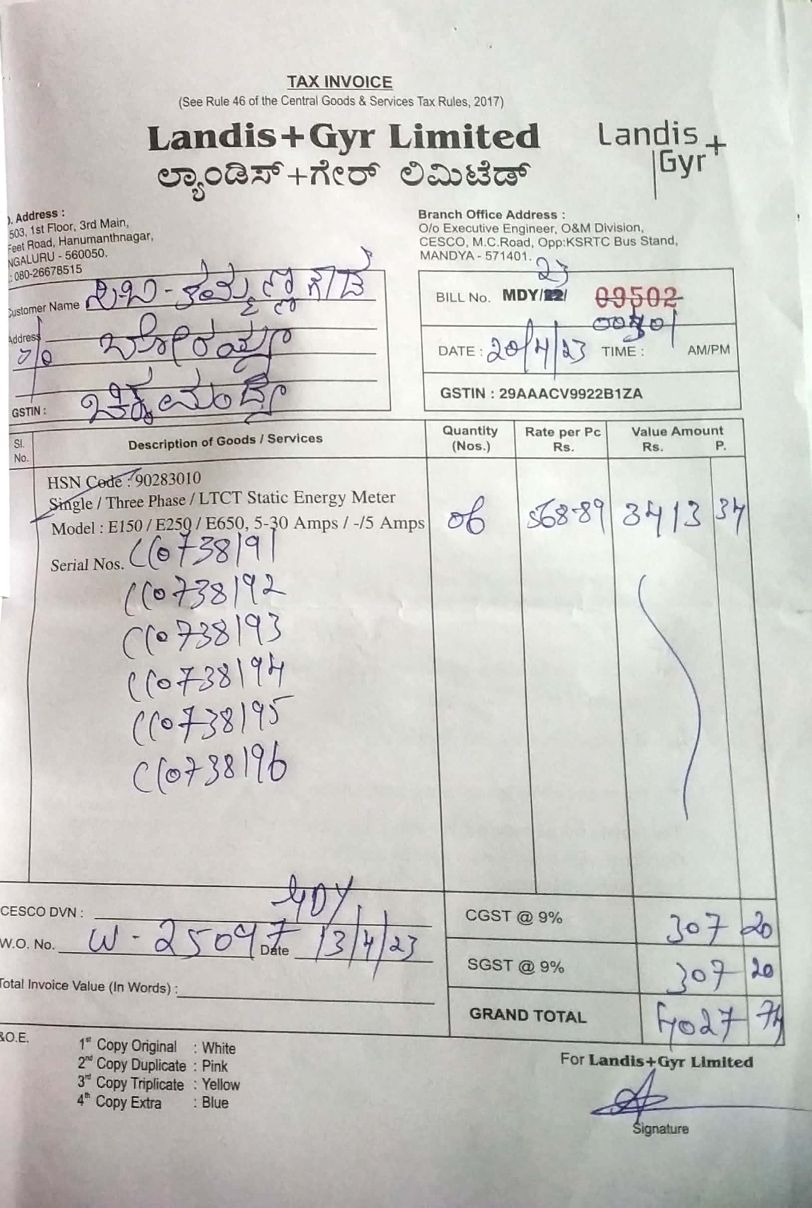 TAX INVOICE
(See Rule 46 of the Central Goods & Services Tax Rules, 2017)
Landis+Gyr Limited
ಲ್ಯಾಂಡಿಸ್+ಗೇರ್ ಲಿಮಿಟೆಡ್
Landis
Gyr+
. Address :
503, 1st Floor, 3rd Main,
Feet Road, Hanumanthnagar,
NGALURU - 560050.
: 080-26678515
Branch Office Address :
O/o Executive Engineer, O&M Division,
CESCO, M.C.Road, Opp:KSRTC Bus Stand,
MANDYA - 571401.
Customer Name
Address
GSTIN :
23
BILL No. MDY/22/ 09502
DATE : 20/4/23 TIME : AM/PM
GSTIN : 29AAACV9922B1ZA
Sl. No. Description of Goods / Services Quantity (Nos.) Rate per Pc Rs. Value Amount Rs. P.
HSN Code : 90283010
Single / Three Phase / LTCT Static Energy Meter
Model : E150 / E250 / E650, 5-30 Amps / -/5 Amps 06 568-89 3413 34
Serial Nos. CC0738191
CC0738192
CC0738193
CC0738194
CC0738195
CC0738196
CESCO DVN : MDY
W.O. No. W - 25097 Date 13/4/23
Total Invoice Value (In Words) :
CGST @ 9% 307 20
SGST @ 9% 307 20
GRAND TOTAL 4027 74
&O.E.
1st Copy Original : White
2nd Copy Duplicate : Pink
3rd Copy Triplicate : Yellow
4th Copy Extra : Blue
For Landis+Gyr Limited
Signature